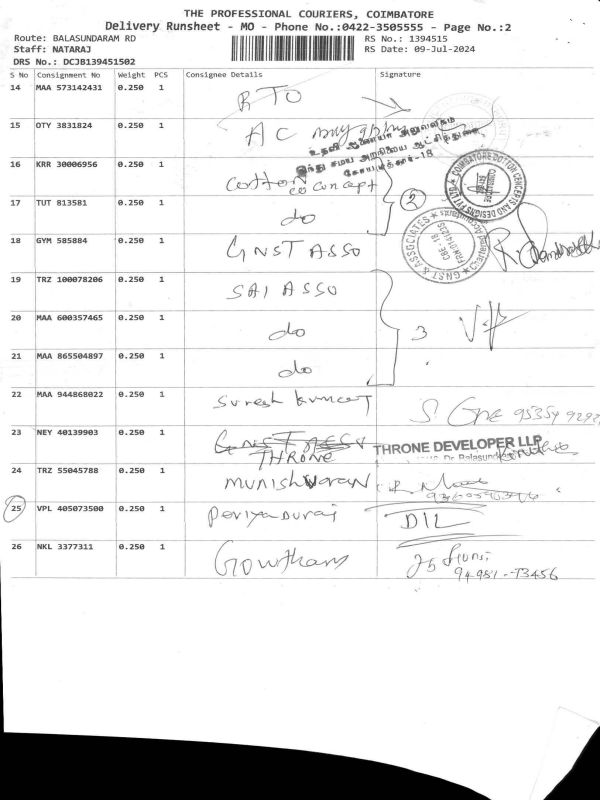 THE PROFESSIONAL COURIERS, COIMBATORE
Delivery Runsheet - MO - Phone No.:0422-3505555 - Page No.:2
Route: BALASUNDARAM RD RS No.: 1394515
Staff: NATARAJ RS Date: 09-Jul-2024
DRS No.: DCJB139451502
S No Consignment No Weight PCS Consignee Details Signature
14 MAA 573142431 0.250 1 RTO
15 OTY 3831824 0.250 1 AC
உதவி ஆணையர் அலுவலகம்
இந்து சமய அறநிலைய ஆட்சித்துறை,
கோயமுத்தூர்-18
16 KRR 30006956 0.250 1 cotton concept
COIMBATORE COTTON CONCEPTS AND DESIGNS PVT LTD
17 TUT 813581 0.250 1 do 2
18 GYM 585884 0.250 1 GNST ASSO
GNST & ASSOCIATES Chartered Accountants CBE - 18
19 TRZ 100078206 0.250 1 SAI ASSO
20 MAA 600357465 0.250 1 do 3
21 MAA 865504897 0.250 1 do
22 MAA 944868022 0.250 1 Suresh kumar
23 NEY 40139903 0.250 1 THRONE THRONE DEVELOPER LLP
24 TRZ 55045788 0.250 1 munishwaran
25 VPL 405073500 0.250 1 Periyadurai DIL
26 NKL 3377311 0.250 1 Gowtham
94981-73456